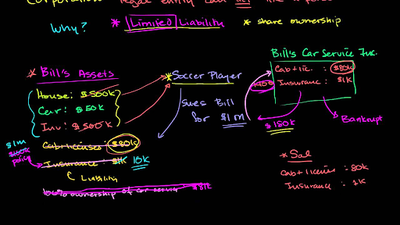 Why? * Limited Liability * share ownership
Bill's Car Service Inc.
* Bill's Assets
House: $500k
Car: $50k
Inv: $500k
Cab+license: $80k
Insurance $1K 10k
Liability
100% ownership of car service $81k
$1m
policy
* Soccer Player
Sues Bill
for $1m
Cab+lic: $80k
Insurance: $1k
$150k
Bankrupt
* Sal
Cab+license: 80k
Insurance: 1k